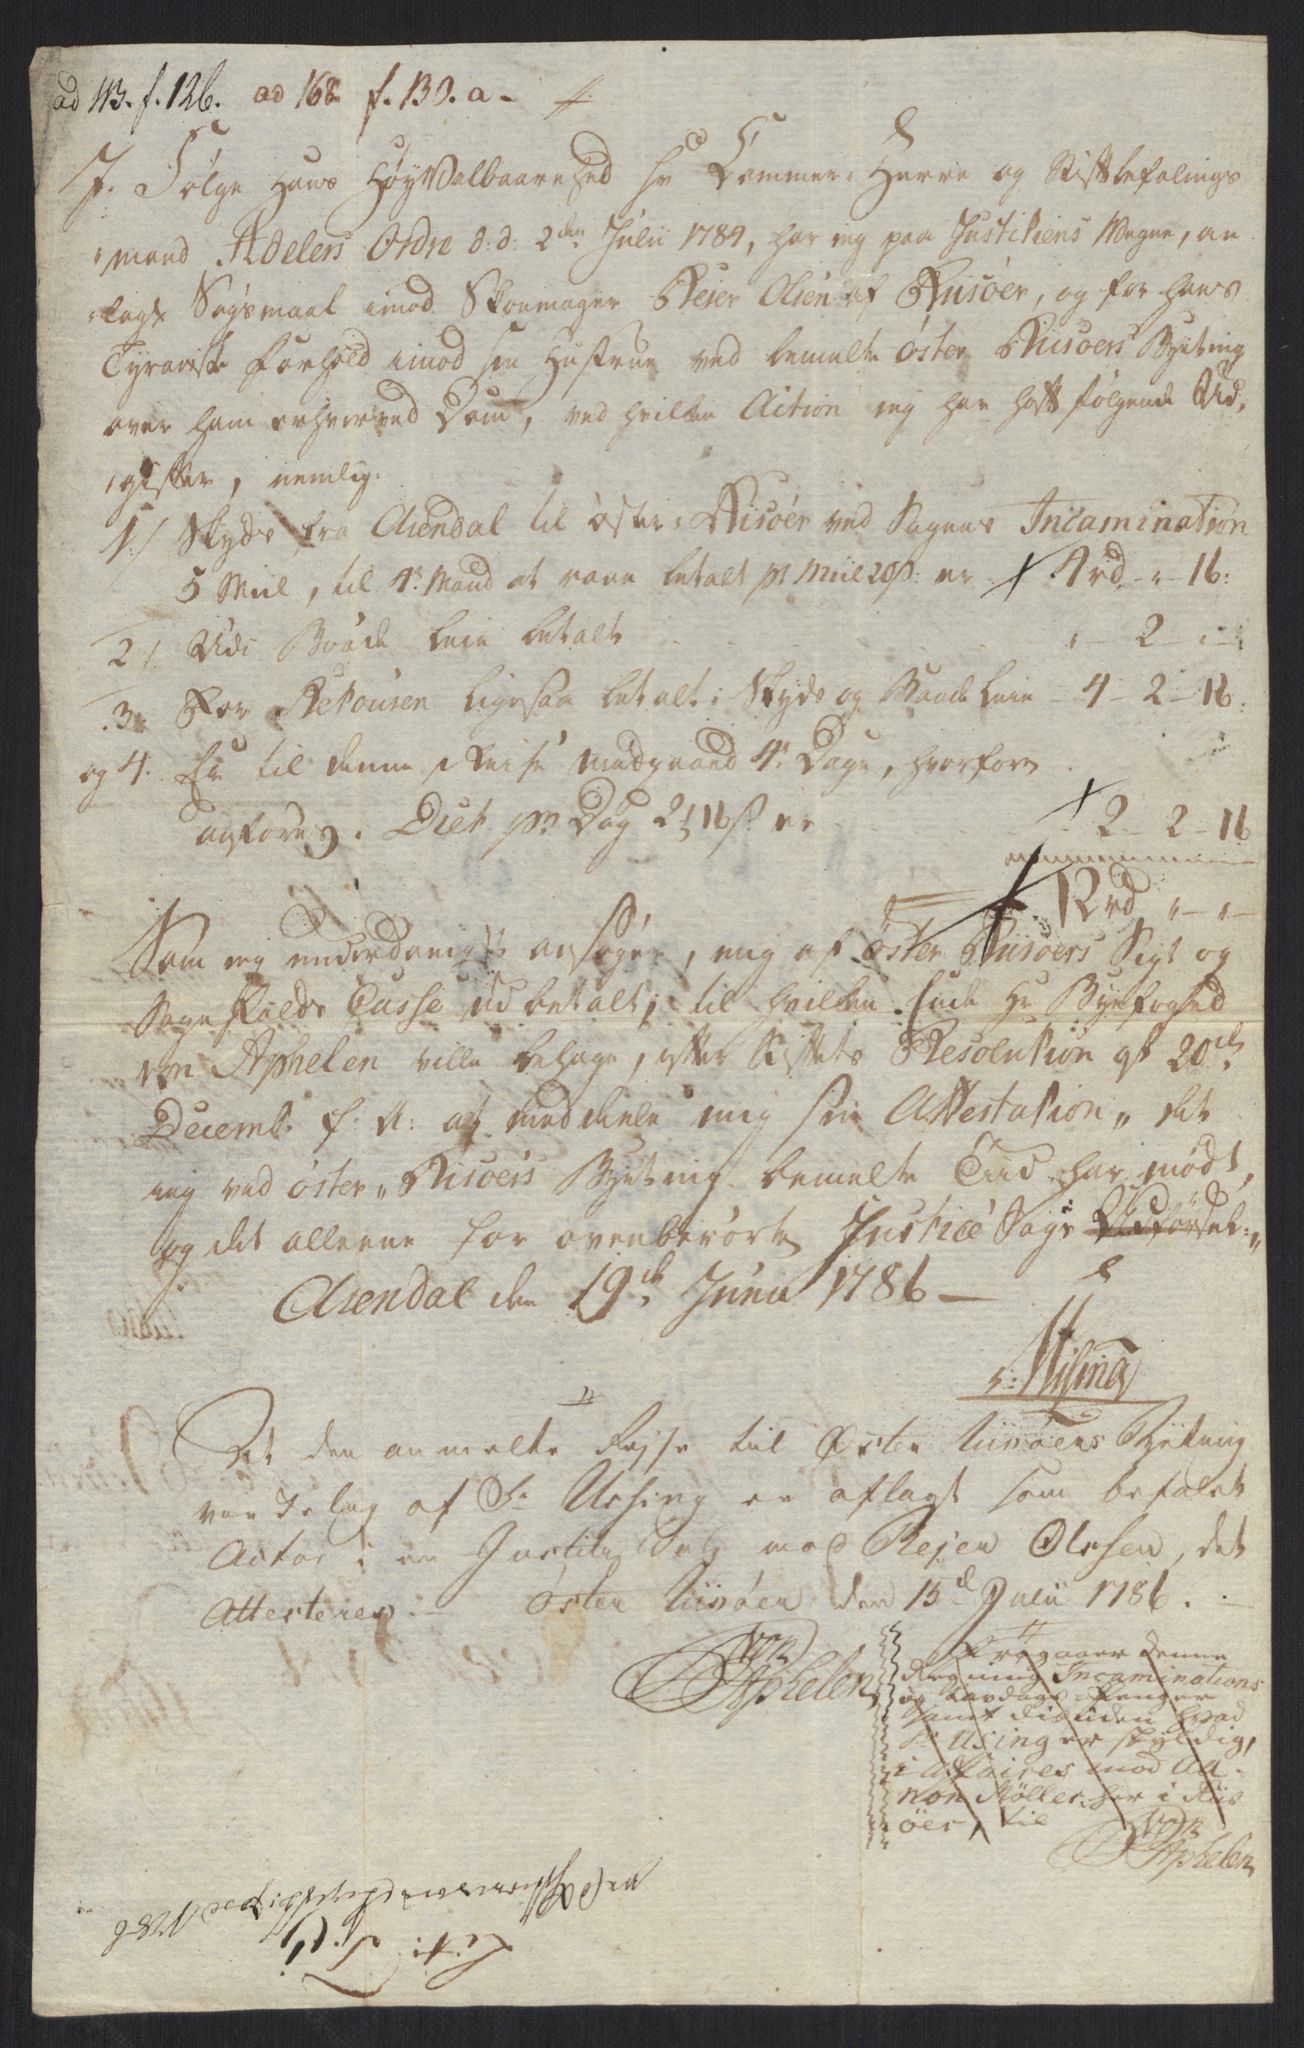 ad 113. f. 126. ad 168 f. 130. a.
I Følge Hans HøyVelbaarenhed Hr Cammer Herre og Stiftbefalings
mand Adelers Ordre d: d: 2den Julii 1784, har ieg paa Justitiens Vegne, an
lagt Søgsmaal imod Skoemager Reier Olsen af Riisöer, og for hans
Tyraniske Forhold imod sin Hustrue ved bemelte öster Riisoers Byeting
over ham erhvervet Dom, ved hvilken Action ieg har hatt følgende Ud,
gifter, nemlig.
1/ Skyds fra Arendal til öster Riisöer ved Sagens Incamination
5 Miil, til 4r Mand at roe betalt pr Miil 20s: er 4rd - " - 16:
2/ Udi Baade leie betalt " - 2 - "
3. For Retouren ligesaa betalt i Skyds og Baadeleie - 4 - 2 - 16:
og 4. Er til denne Reise medgaaed 4r Dage, hvorfore
anføres. Diet pr Dag 2 16s. er 2 - 2 - 16
12rd " - " -
Som ieg underdanigst ansøger, mig af öster Riisoers Sigt og
Sagefalds Casse udbetalt; til hvilken Ende Hr Byefoged
von Aphelen ville behage, efter Stiftets Resolution af 20de
Decemb. f. A: at meddeele mig sin Attestation, det
ieg ved öster Riisoers Byeting bemelte Tiid har mødt,
og det alleene for ovenberörte Justice Sags Udförsel.
Arendal den 19de Junii 1786 —
Ussing
At den anmelte Rejse til Øster Riisöers Byeting
af Sr Ussing er aflagt som befalet
Actor i en Justitz Sag mod Rejer Olesen, det
Attesteres. — Öster Riisöer den 15de Julii 1786.
von Aphelen
Fragaaer denne
Regning Incaminations
og Penger
samt desuden hvad
Sr Using er skyldig,
i Affaires mod Aa-
ron Møller her i Riis
öer, til
von Aphelen
1786